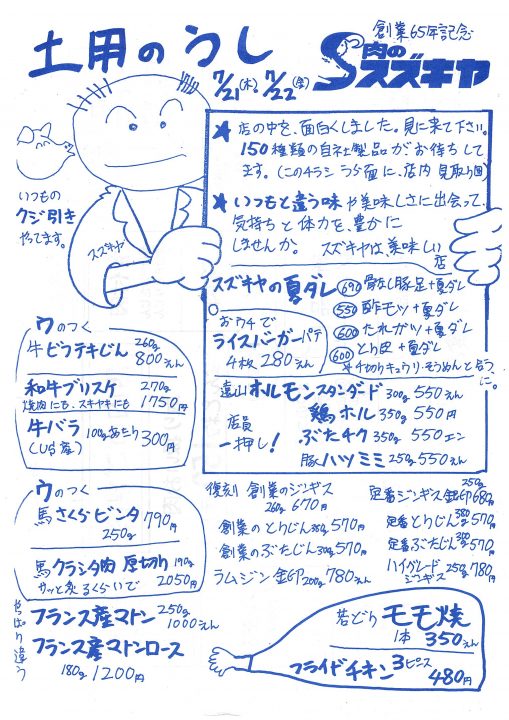 土用のうし
7/21(木)、7/22(金)
創業65年記念
肉の
スズキヤ
★ 店の中を、面白くしました。見に来て下さい。
150種類の自社製品がお待ちして
ます。(このチラシ うら面に、店内見取り図)
★ いつもと違う味や美味しさに出会って、
気持ちと体力を、豊かに
しませんか。 スズキヤは、美味しい
店
いつもの
クジ引き
やってます。
スズキヤ
スズキヤの夏ダレ
690 骨なし豚足+夏ダレ
550 酢モツ+夏ダレ
600 たれガツ+夏ダレ
600 とり皮+夏ダレ
千切りキュウリ、そうめんと合う
に。
おウチで
ライスバーガーパテ
4枚 280えん
遠山ホルモンスタンダード 300g 550えん
鶏ホル 350g 550円
ぶたチク 350g 550エン
豚ハツミミ 250g 550えん
店員
一押し!
ウのつく
牛ビフテキじん 260g
800えん
和牛ブリスケ 270g
焼肉にも、スキヤキにも 1750円
牛バラ 100gあたり 300円
(US産)
ウのつく
馬さくらビンタ 790円
250g
馬クラシタ肉 厚切り 190g
サッと炙るくらいで 2050円
復刻 創業のジンギス
260g 670円
創業のとりじん 380g 570円
創業のぶたじん 380g 570円
ラムジン金印 200g 780えん
定番ジンギス金印 250g 680円
定番とりじん 380g 570円
定番ぶたじん 380g 570円
ハイグレード
ジンギス 250g 780円
やっぱり違う
フランス産マトン 250g
1000えん
フランス産マトンロース
180g 1200円
若どり モモ焼
1本 350えん
フライドチキン 3ピース
480円